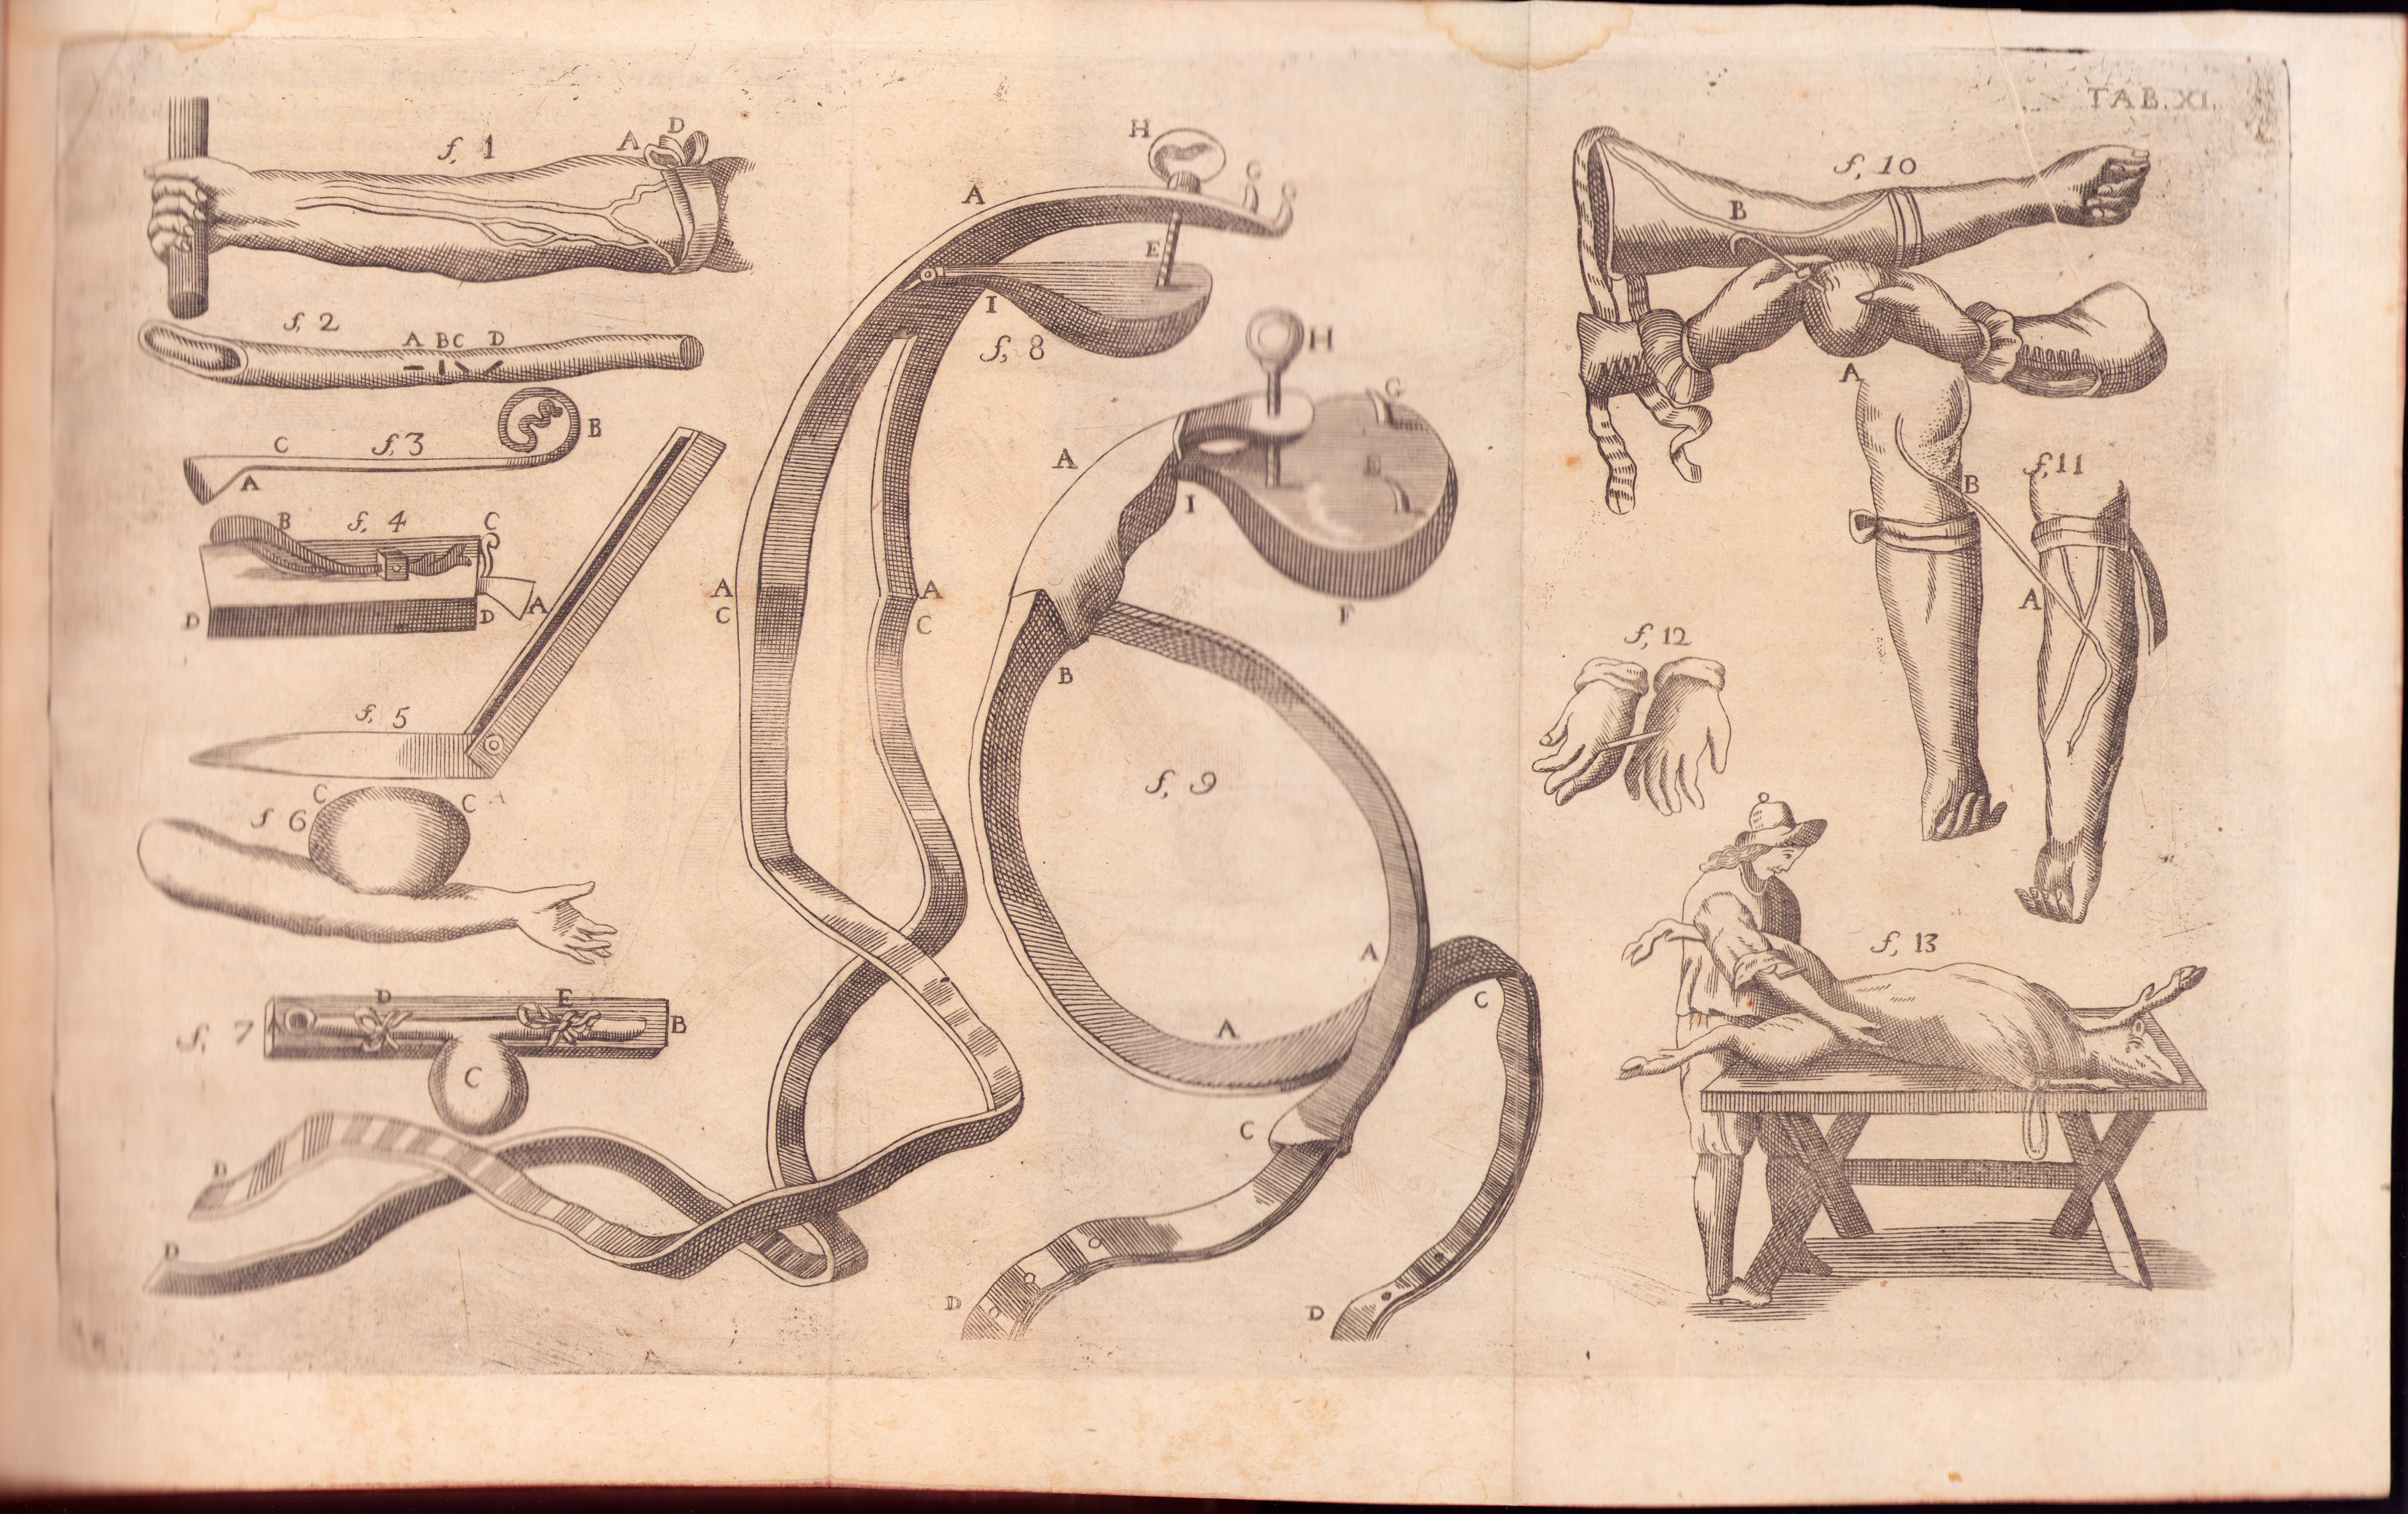 TAB. XI.
f, 1
A D
f, 2
A B C D
f, 3
C B
A
f, 4
B C
D D A
f, 5
f 6
C C
f, 7
A D E B
C
D
D
f, 8
H
A
E
I
A A
C C
f, 9
H
G
A
E
I
F
B
A
A
C
C
D
D
f, 10
B
A
B
f, 11
A
f, 12
f, 13